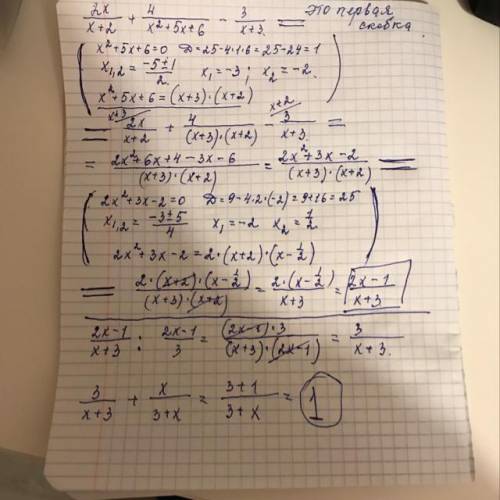 2x/(x+2) + 4/(x²+5x+6) - 3/(x+3) = это первая скобка.
x²+5x+6=0 D=25-4·1·6=25-24=1
x₁,₂ = (-5±1)/2 x₁=-3; x₂=-2.
x²+5x+6=(x+3)·(x+2)
x+3 x+2
= 2x/(x+2) + 4/((x+3)·(x+2)) - 3/(x+3) =
= (2x²+6x+4-3x-6)/((x+3)·(x+2)) = (2x²+3x-2)/((x+3)·(x+2)) =
2x²+3x-2=0 D=9-4·2·(-2)=9+16=25
x₁,₂ = (-3±5)/4 x₁=-2 x₂=1/2
2x²+3x-2=2·(x+2)·(x-1/2)
= (2·(x+2)·(x-1/2))/((x+3)·(x+2)) = (2·(x-1/2))/(x+3) = (2x-1)/(x+3)
(2x-1)/(x+3) : (2x-1)/3 = ((2x-1)·3)/((x+3)·(2x-1)) = 3/(x+3).
3/(x+3) + x/(3+x) = (3+1)/(3+x) = 1